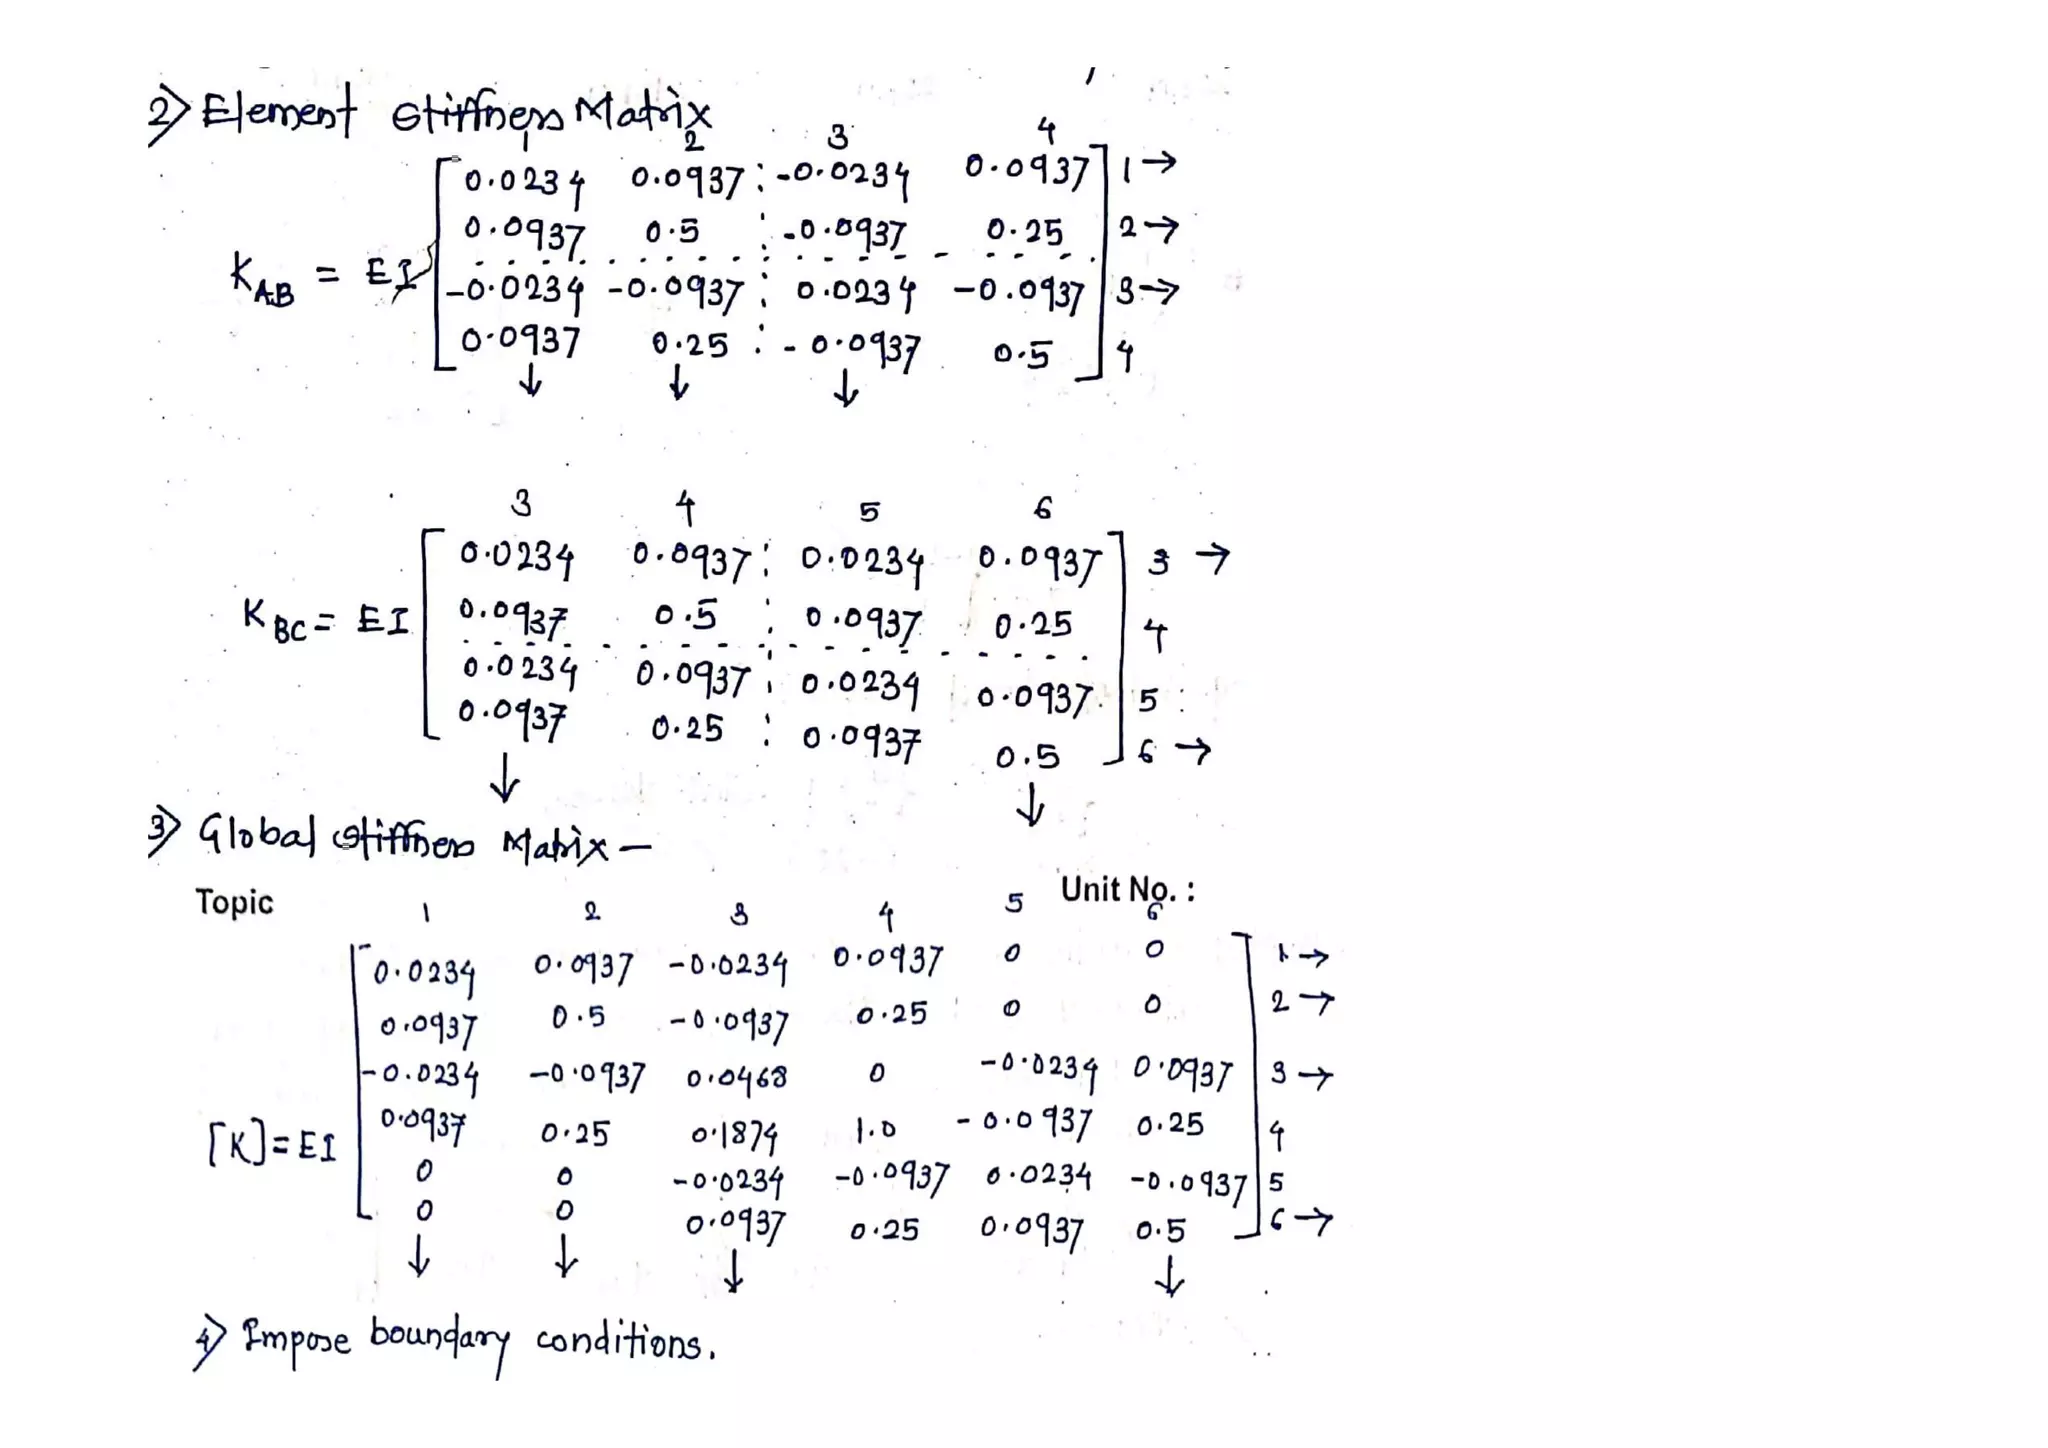 2) Element Stiffness Matrix
1 2 3 4
0.0234 0.0937 -0.0234 0.0937 1 →
0.0937 0.5 -0.0937 0.25 2 →
K_AB = EI
-0.0234 -0.0937 0.0234 -0.0937 3 →
0.0937 0.25 -0.0937 0.5 4
↓ ↓ ↓
3 4 5 6
0.0234 0.0937 0.0234 0.0937 3 →
K_BC = EI 0.0937 0.5 0.0937 0.25 4
0.0234 0.0937 0.0234 0.0937 5
0.0937 0.25 0.0937 0.5 6 →
↓ ↓
3) Global Stiffness Matrix —
Topic Unit No. :
1 2 3 4 5 6
0.0234 0.0937 -0.0234 0.0937 0 0 1 →
0.0937 0.5 -0.0937 0.25 0 0 2 →
-0.0234 -0.0937 0.0468 0 -0.0234 0.0937 3 →
[K] = EI 0.0937 0.25 0.1874 1.0 -0.0937 0.25 4
0 0 -0.0234 -0.0937 0.0234 -0.0937 5
0 0 0.0937 0.25 0.0937 0.5 6 →
↓ ↓ ↓ ↓
4) Impose boundary conditions.